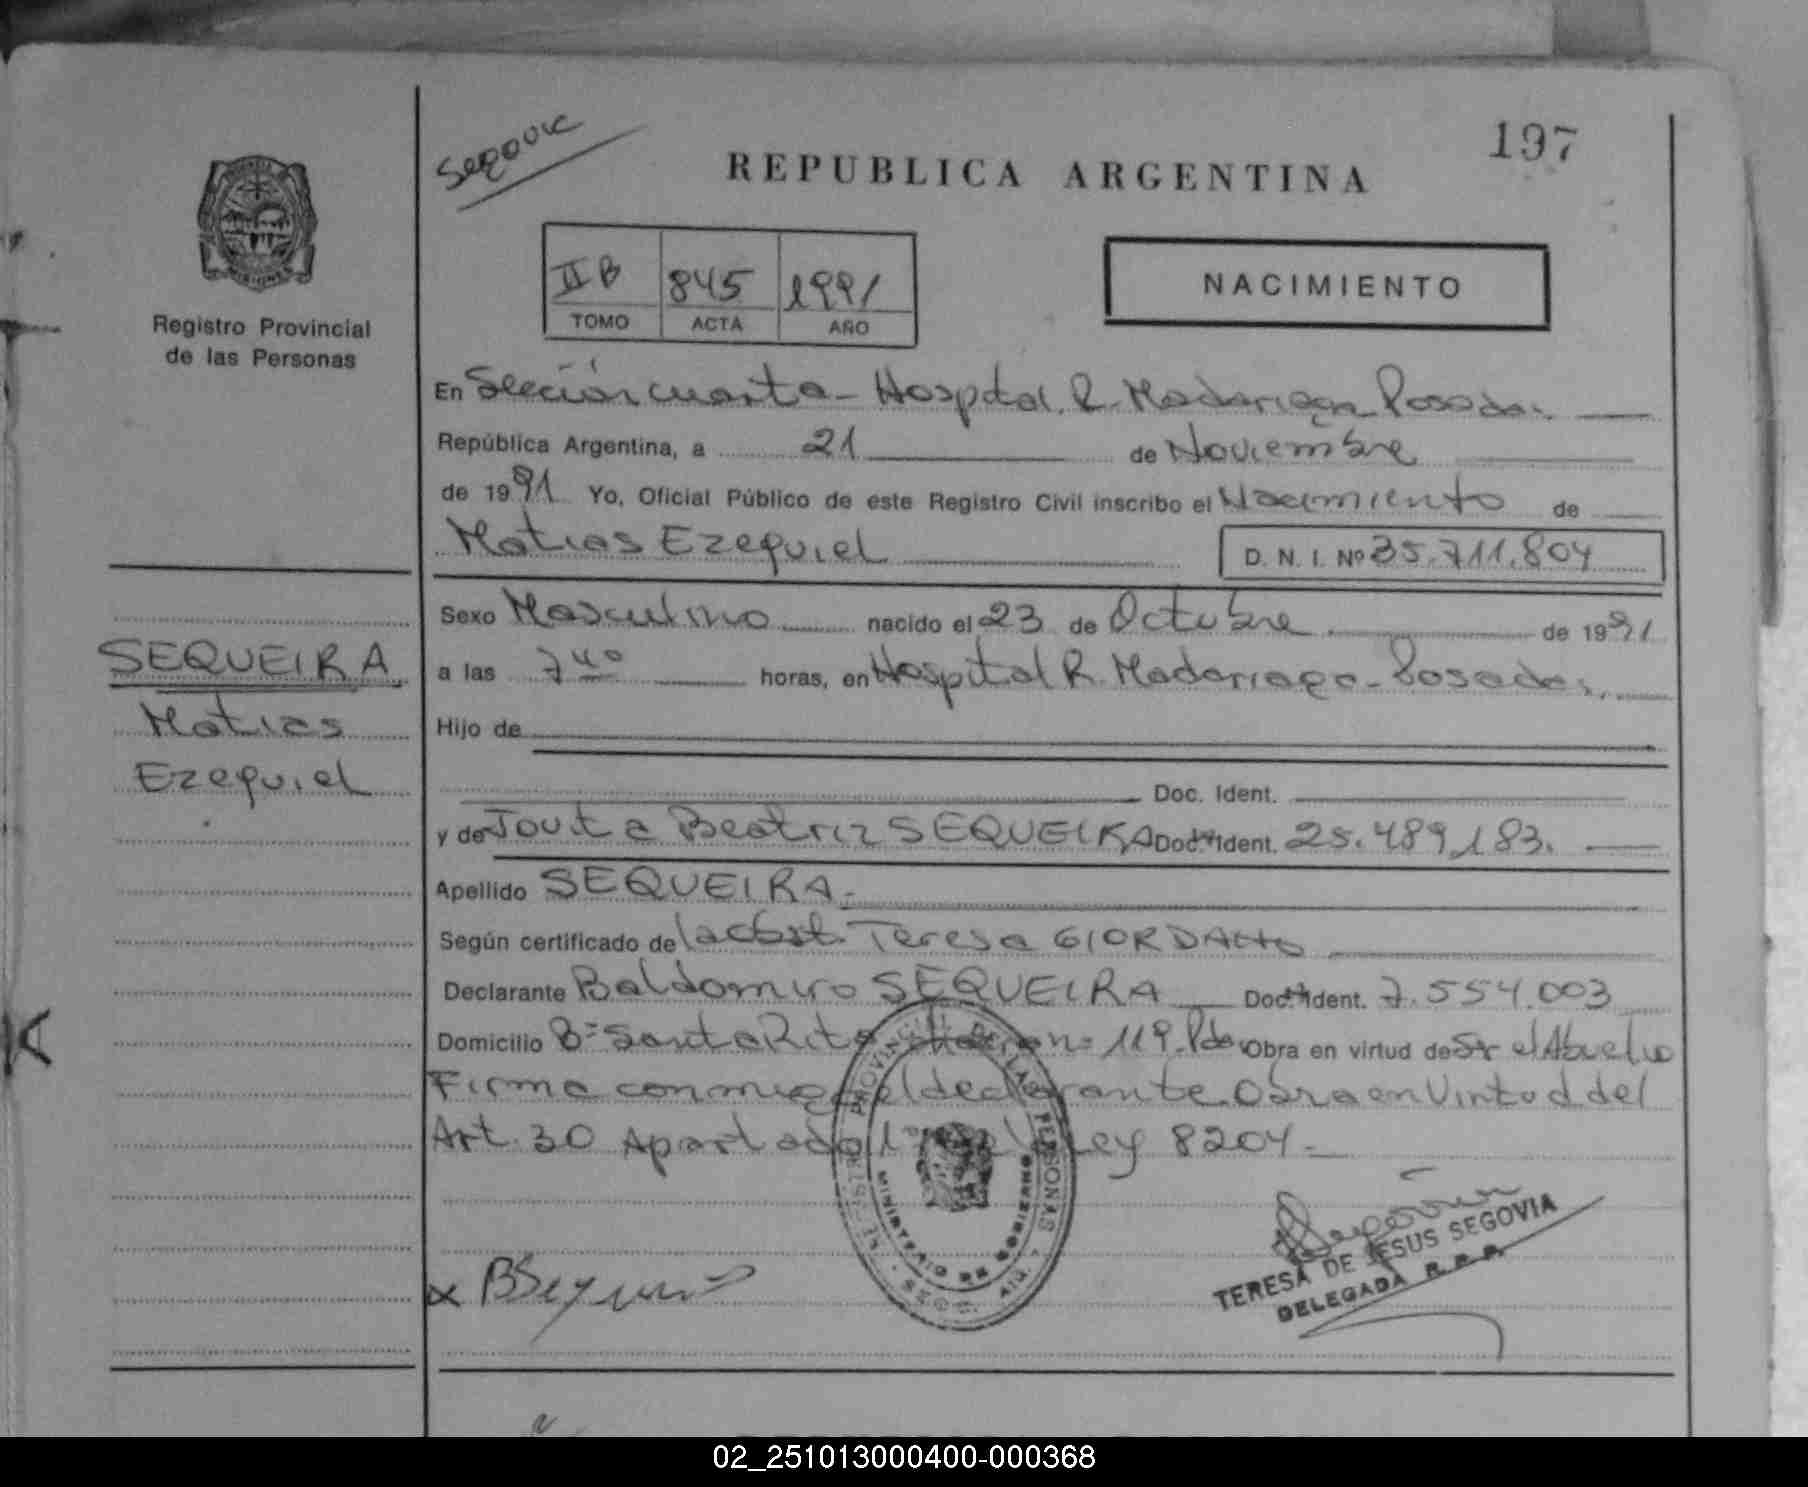 Segovia
REPUBLICA ARGENTINA
197
Registro Provincial
de las Personas
II B 845 1991
TOMO ACTA AÑO
NACIMIENTO
En Sección cuarta - Hospital R. Madariaga Posadas
República Argentina, a 21 de Noviembre
de 1991 Yo, Oficial Público de este Registro Civil inscribo el Nacimiento de
Matias Ezequiel D. N. I. Nº 35.711.804
SEQUEIRA
Matias
Ezequiel
Sexo Masculino nacido el 23 de Octubre de 1991
a las 7 40 horas, en Hospital R. Madariaga - Posadas.
Hijo de
Doc. Ident.
y de Jovita Beatriz SEQUEIRA Doc. Ident. 25.489.183.
Apellido SEQUEIRA.
Según certificado de la Obst. Teresa GIORDANO
Declarante Baldomiro SEQUEIRA Doc. Ident. 7.554.003
Domicilio Bº Santa Rita nº 119. Pdas Obra en virtud de Sr el Abuelo
Firma conmigo el declarante Obra en Virtud del
Art. 30 Apartado 1º de la Ley 8204.-
REGISTRO PROVINCIAL DE LAS PERSONAS
MINISTERIO DE GOBIERNO
x BSequeira
Segovia
TERESA DE JESUS SEGOVIA
DELEGADA R. P. P.
02_251013000400-000368